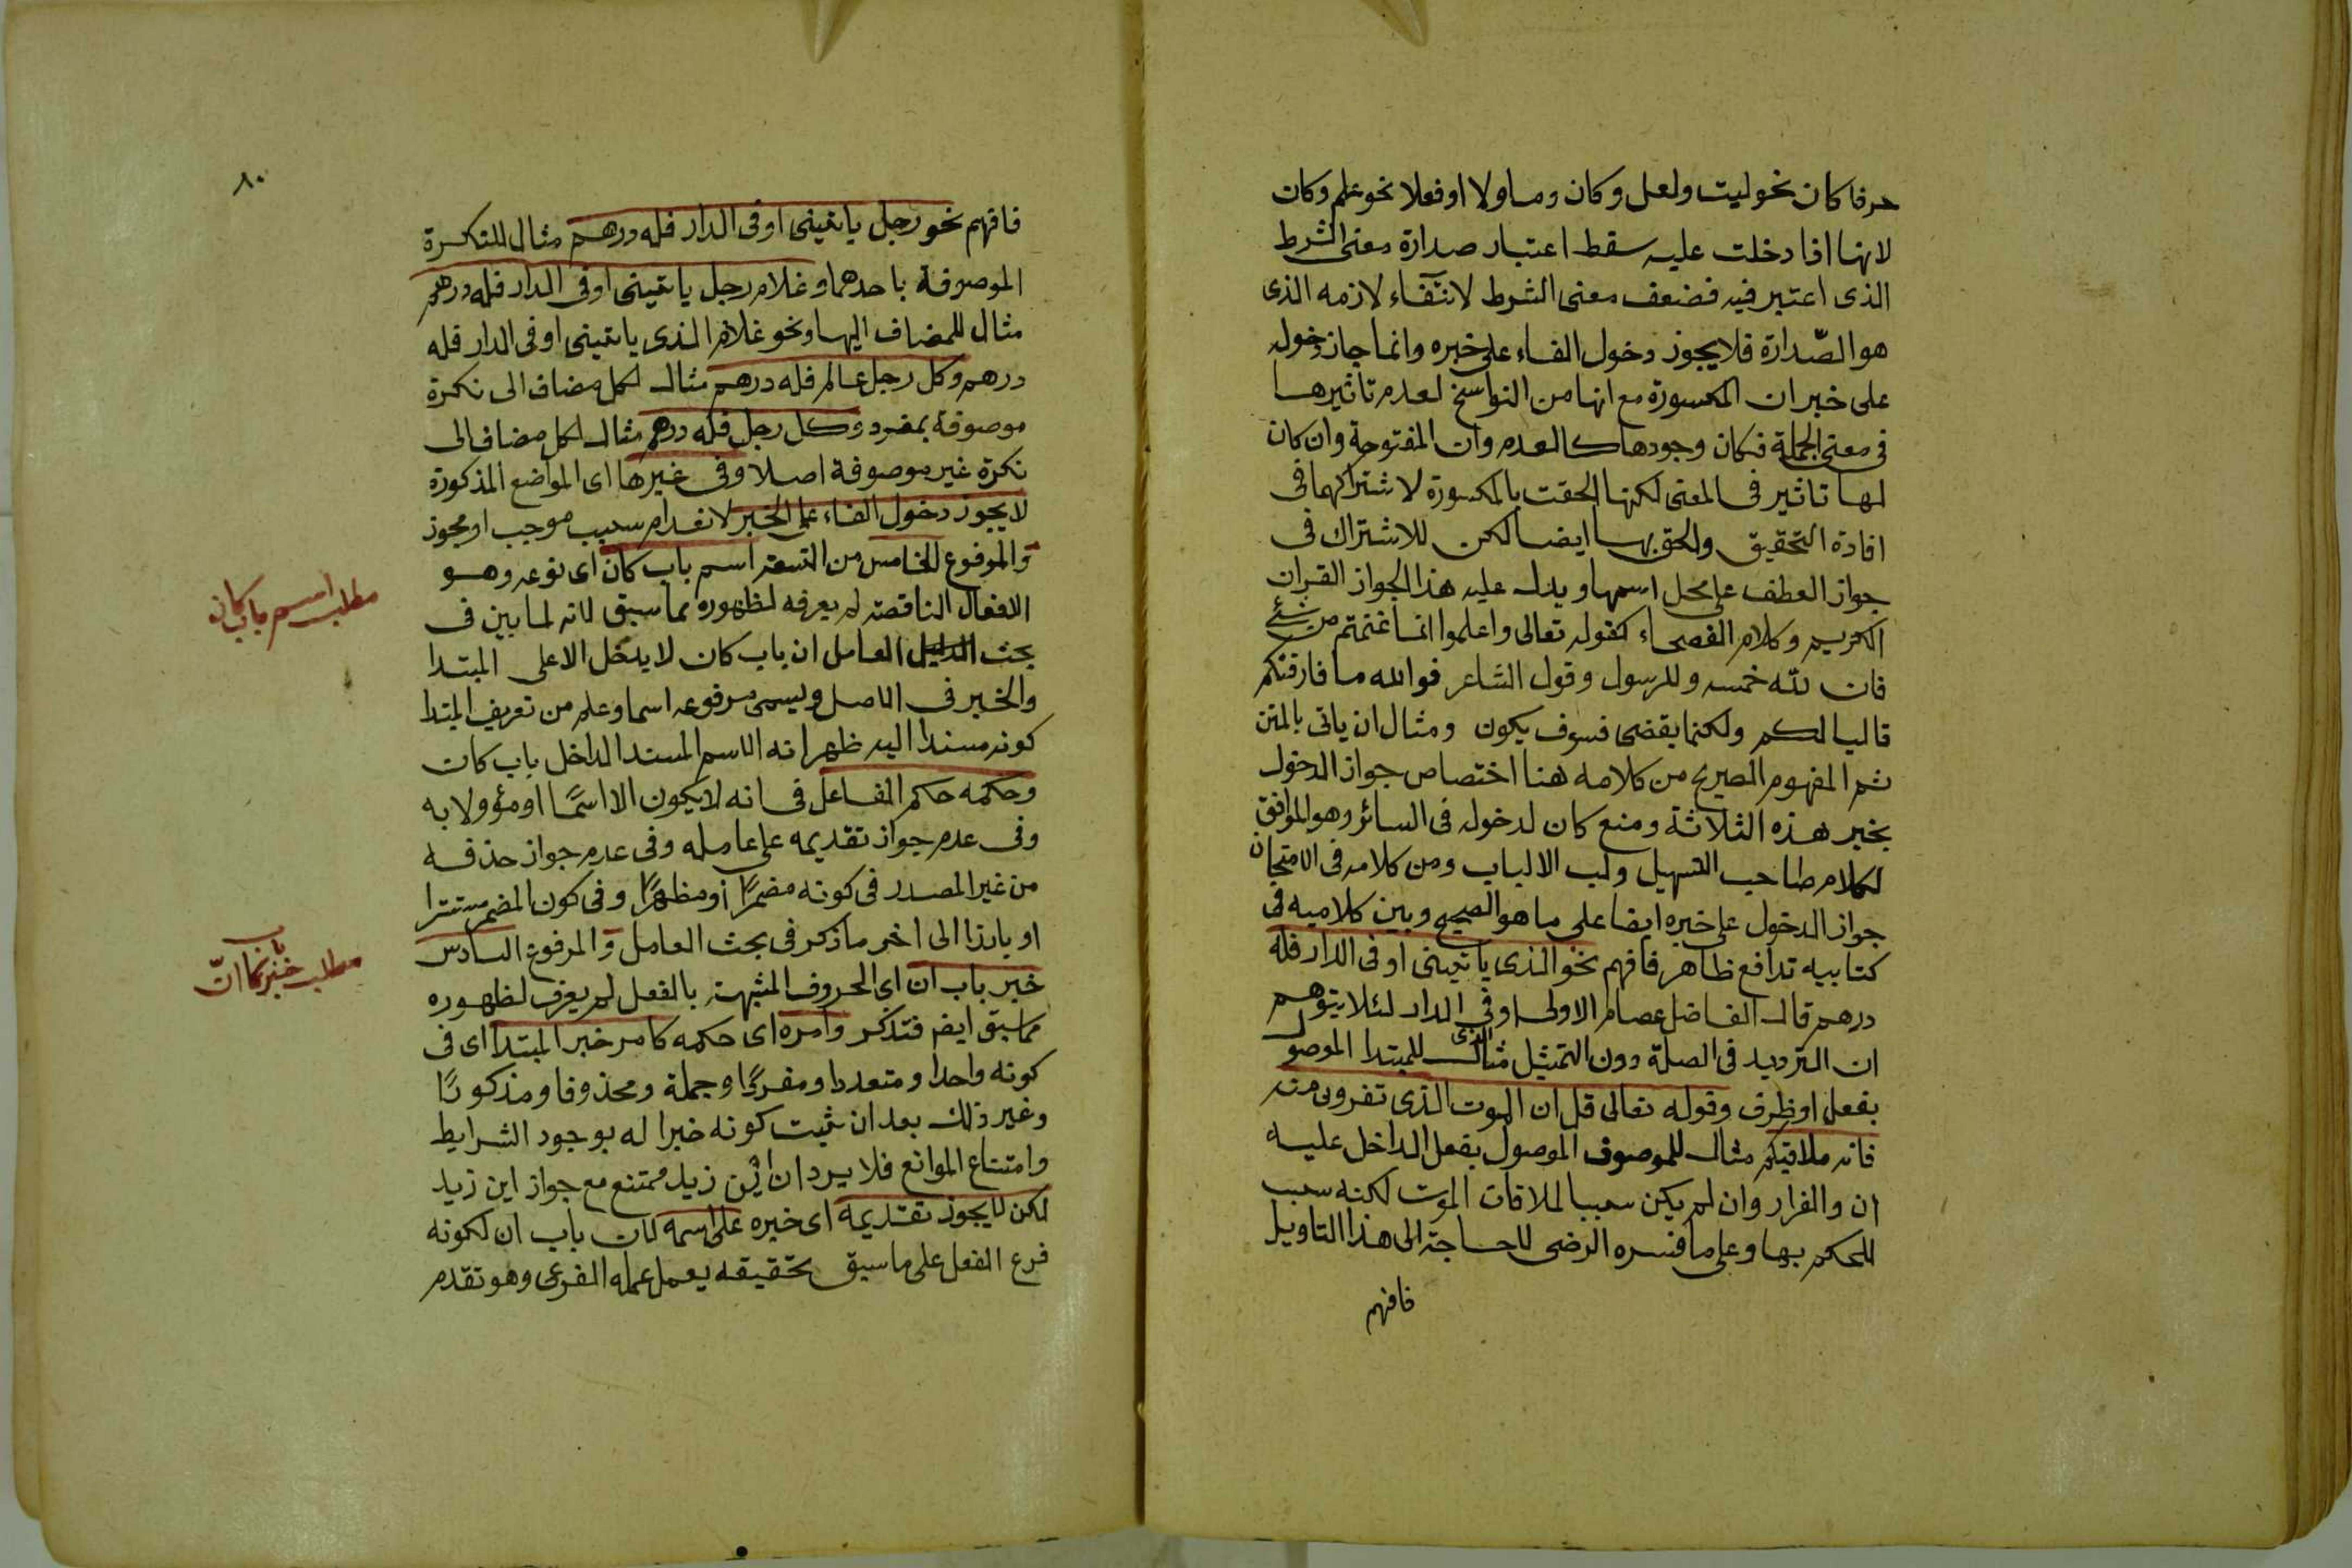 حرفا كان نحو ليت ولعل وكان وما ولا او فعلا نحو علم وكان
لانها اذا دخلت عليه سقط اعتبار صدارة معنى الشرط
الذى اعتبر فيه فضعف معنى الشرط لانتفاء لازمه الذى
هو الصّدارة فلا يجوز دخول الفاء على خبره وانما جاز دخوله
على خبر ان المكسورة مع انها من النواسخ لعدم تاثيرها
فى معنى الجملة فكان وجودها كالعدم وان المفتوحة وان كان
لها تاثير فى المعنى لكنها الحقت بالمكسورة لاشتراكهما فى
افادة التحقيق والحق بها ايضا لكن للاشتراك فى
جواز العطف على محل اسمها ويدل عليه هذا الجواز القران
الكريم وكلام الفصحاء كقوله تعالى واعلموا انما غنمتم من شئ
فان لله خمسه وللرسول وقول الشاعر فوالله ما فارقتكم
قاليا لكم ولكنما يقضى فسوف يكون ومثال ان ياتى بالمتن
ثم المفهوم الصريح من كلامه هنا اختصاص جواز الدخول
بخبر هذه الثلاثة ومنع كان لدخوله فى السائر وهو الموافق
لكلام صاحب التسهيل ولب الالباب ومن كلامه فى الامتحان
جواز الدخول على خبره ايضا على ما هو الصحيح وبين كلاميه فى
كتابيه تدافع ظاهر فافهم نحو الذى ياتينى او فى الدار فله
درهم قال الفاضل عصام الاولى او فى الدار لئلا يتوهم
ان الترديد فى الصلة دون التمثيل مثال الذى للمبتدا الموصول
بفعل او ظرف وقوله تعالى قل ان الموت الذى تفرون منه
فانه ملاقيكم مثال للموصوف الموصول بفعل الداخل عليه
ان والفرار وان لم يكن سببا لملاقات الموت لكنه سبب
للحكم بها وعلى ما فسره الرضى لا حاجة الى هذا التاويل
فافهم
٨٠
فافهم نحو رجل ياتينى او فى الدار فله درهم مثال للنكرة
الموصوفة باحدهما وغلام رجل ياتينى او فى الدار فله درهم
مثال للمضاف اليها ونحو غلام الذى ياتينى او فى الدار فله
درهم وكل رجل عالم فله درهم مثال لكل مضاف الى نكرة
موصوفة بمفرد وكل رجل فله درهم مثال لكل مضاف الى
نكرة غير موصوفة اصلا وفى غيرها اى المواضع المذكورة
لا يجوز دخول الفاء على الخبر لانعدام سبب موجب او مجوز
والمرفوع الخامس من التسعة اسم باب كان اى نوعه وهو
الافعال الناقصة لم يعرفه لظهوره مما سبق لانه لما بين فى
بحث الدليل العامل ان باب كان لا يدخل الا على المبتدا
والخبر فى الاصل ويسمى مرفوعه اسما وعلم من تعريف المبتدا
كونه مسندا اليه ظهر انه الاسم المسند الداخل باب كان
وحكمه حكم الفاعل فى انه لا يكون الا اسمًا او مؤولا به
وفى عدم جواز تقديمه على عامله وفى عدم جواز حذفه
من غير المصدر فى كونه مضمرًا او مظهرًا وفى كون المضمر مستترا
او بارزا الى اخر ما ذكر فى بحث العامل والمرفوع السادس
خبر باب ان اى الحروف المشبهة بالفعل لم يعرف لظهوره
مما سبق ايضا فتذكر وامره اى حكمه كامر خبر المبتدا اى فى
كونه واحدا ومتعددا ومفردًا وجملة ومحذوفا ومذكورًا
وغير ذلك بعد ان ثبت كونه خبرا له بوجود الشرايط
وامتناع الموانع فلا يرد ان اين زيد ممتنع مع جواز اين زيد
لكن لا يجوز تقديمه اى خبره على اسمه لان باب ان لكونه
فرع الفعل على ما سبق تحقيقه يعمل عمله الفرعى وهو تقدم
مطلب اسم باب كان
مطلب خبر باب انّ